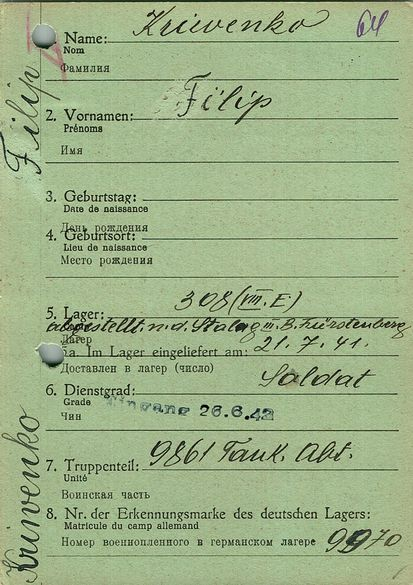 64
Name: Kriwenko
Nom
Фамилия
2. Vornamen: Filip
Prénoms
Имя
3. Geburtstag:
Date de naissance
День рождения
4. Geburtsort:
Lieu de naissance
Место рождения
5. Lager: 308 (VIII. E.)
abgestellt n. d. Stalag III. B. Fürstenberg
Лагер
5a. Im Lager eingeliefert am: 21. 7. 41.
Доставлен в лагер (число)
6. Dienstgrad: Soldat
Grade
Чин
Eingang 26.6.42
7. Truppenteil: 9861 Tank. Abt.
Unité
Воинская часть
8. Nr. der Erkennungsmarke des deutschen Lagers:
Matricule du camp allemand
Номер военнопленного в германском лагере 9970
Kriwenko Filip